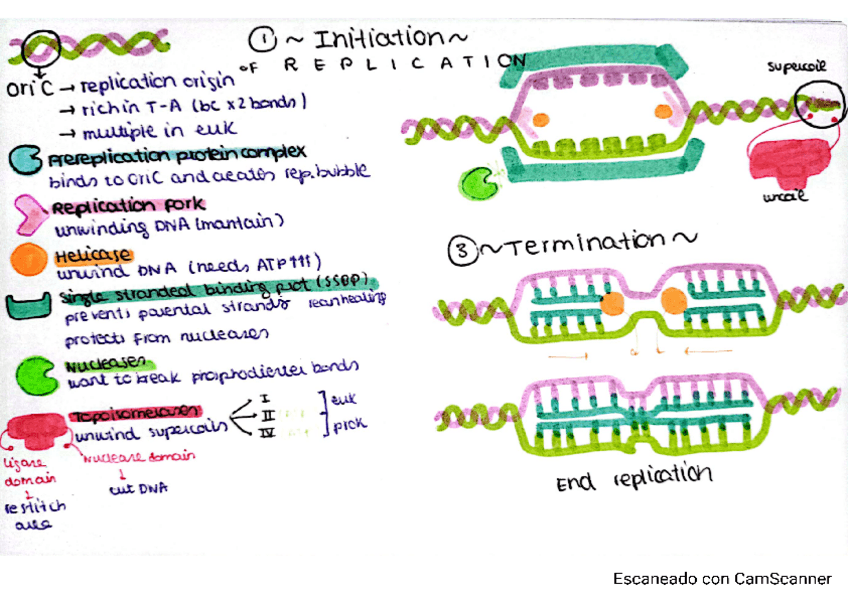 ① ~ Initiation ~
OF REPLICATION
oriC → replication origin
→ rich in T-A (bc x2 bonds)
→ multiple in euk
Prereplication protein complex
binds to OriC and creates rep. bubble
Replication fork
unwinding DNA (mantain)
Helicase
unwind DNA (needs ATP↑↑↑)
Single stranded binding prot (SSBP)
prevents parental strands reanhealing
protects from nucleases
Nucleases
want to break phosphodiester bonds
Topoisomerases
unwind supercoils
I
II
IV
euk
prok
ligase domain
↓
restitch area
nuclease domain
↓
cut DNA
supercoil
uncoil
③ ~ Termination ~
End replication
Escaneado con CamScanner